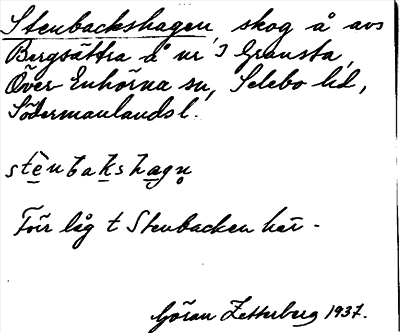 Stenbackshagen, skog å avs
Bergsättra å nr 3 Gransta,
Över Enhörna sn, Selebo hd,
Södermanlandsl.
stènbakshagn̥
Förr låg t Stenbacken här.
Göran Zetterberg 1937.